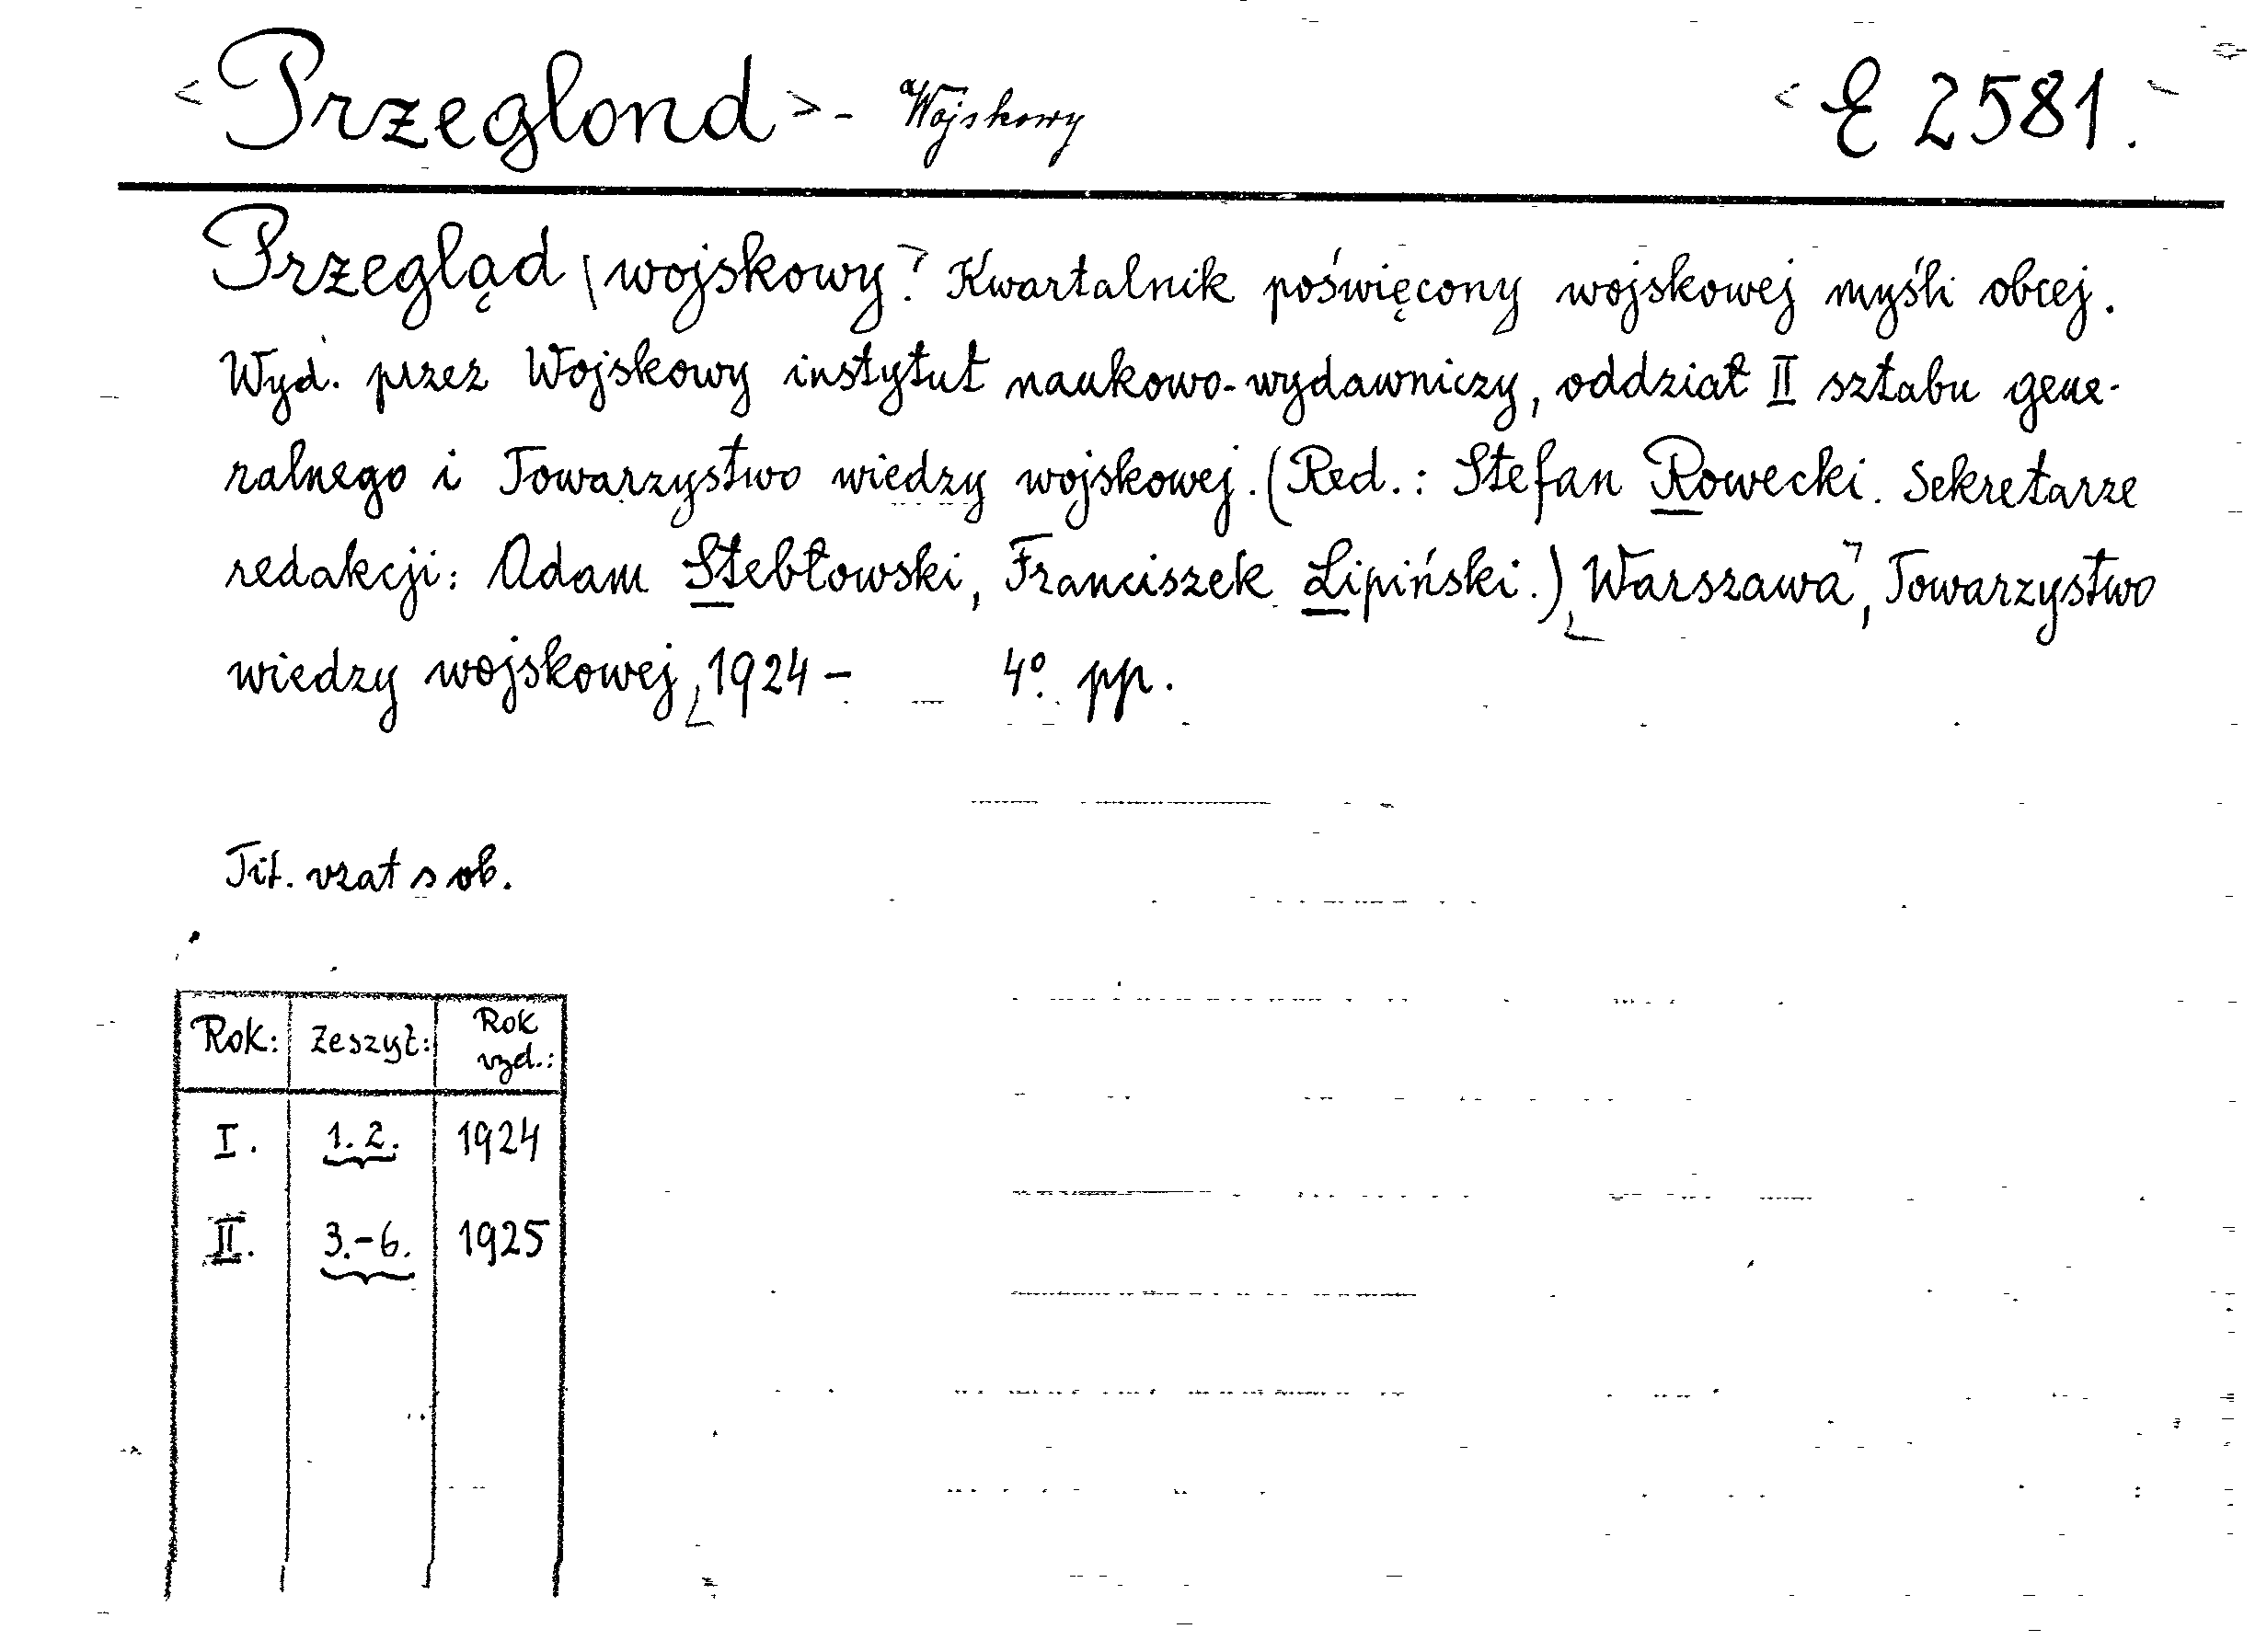 <Przeglond> - Wojskowy <E 2581.>
Przegląd wojskowy. Kwartalnik poświęcony wojskowej myśli obcej.
Wyd. przez Wojskowy instytut naukowo-wydawniczy, oddział II sztabu gene-
ralnego i Towarzystwo wiedzy wojskowej. (Red.: Stefan Rowecki. Sekretarze
redakcji: Adam Stebłowski, Franciszek Lipiński.) Warszawa, Towarzystwo
wiedzy wojskowej, 1924 – 4º. pp.
Tit. vzat s ob.
Rok: Zeszyt: Rok vyd.:
I. 1. 2. 1924
II. 3.-6. 1925